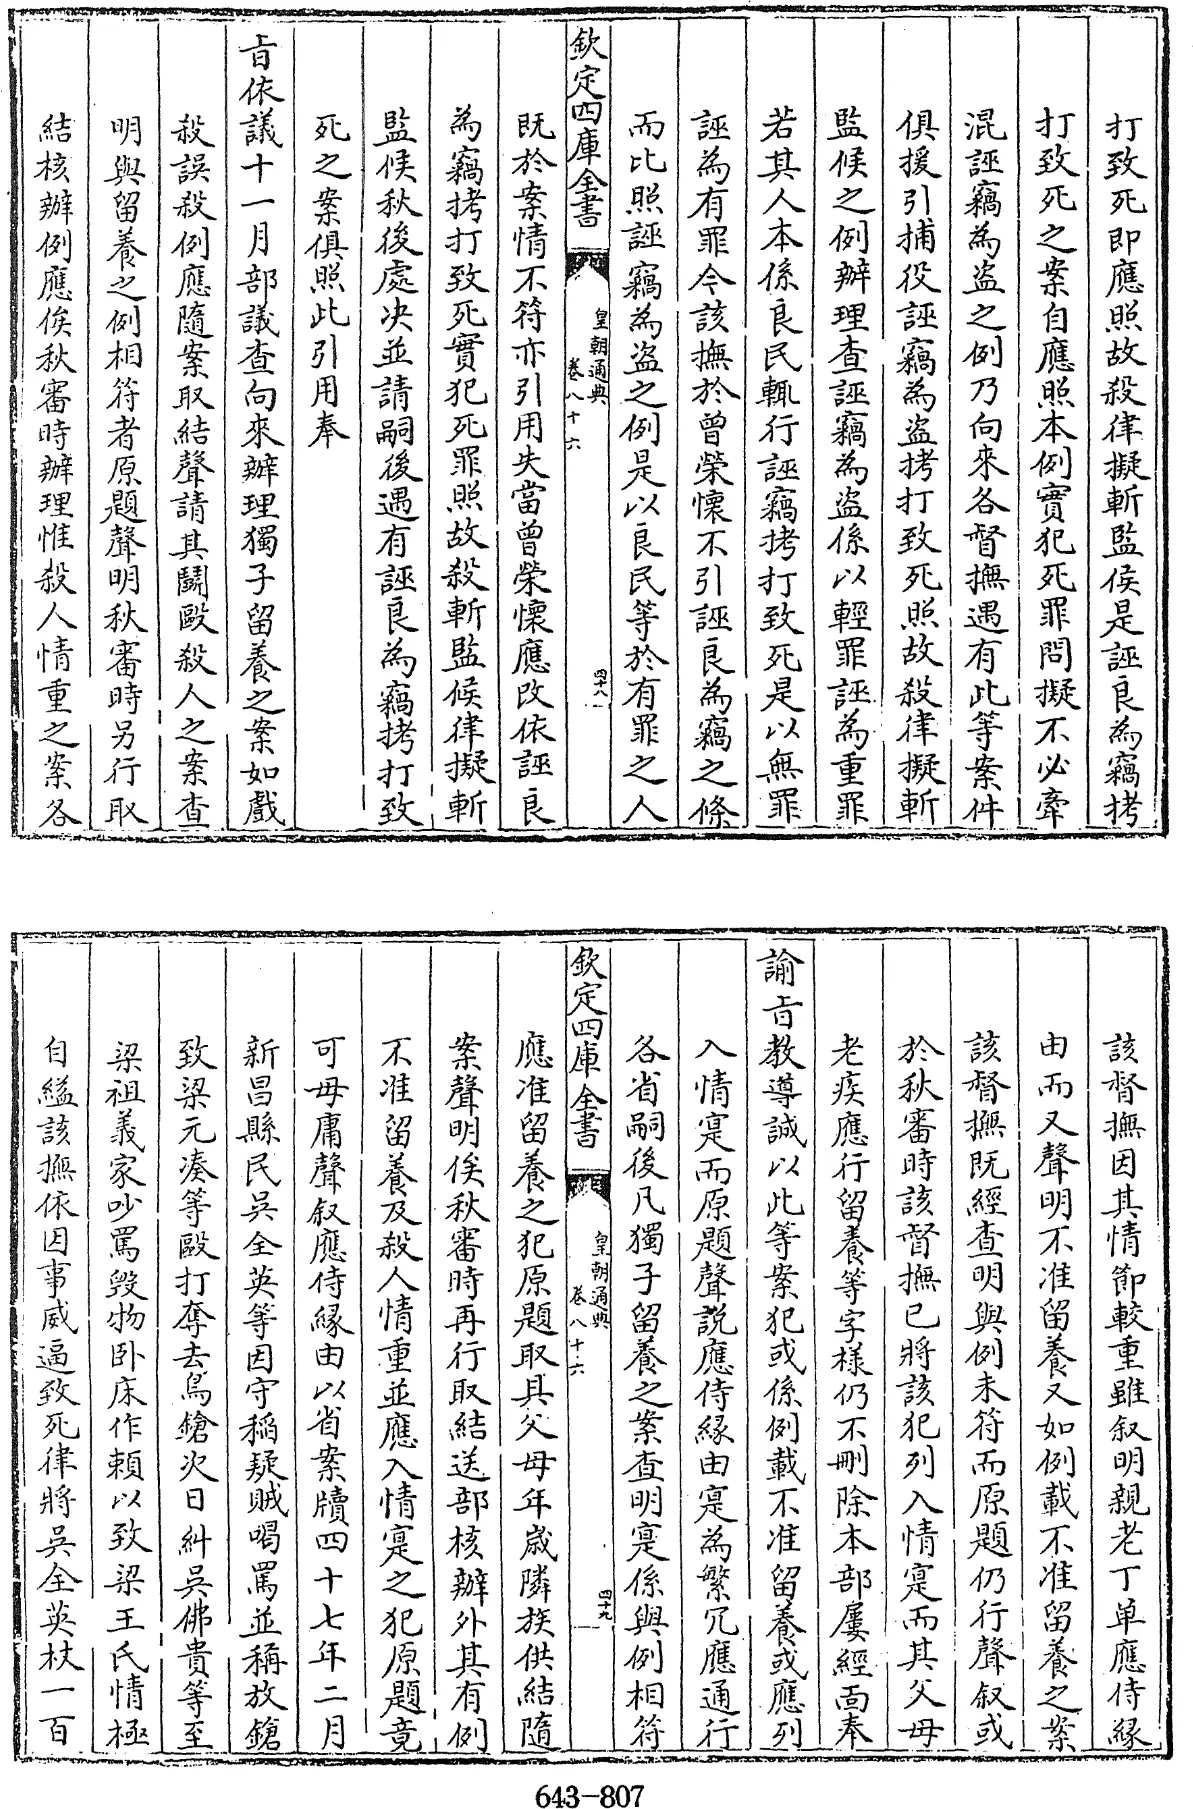 打致死即應照故殺律擬斬監候是誣良為竊拷
打致死之案自應照本例實犯死罪問擬不必牽
混誣竊為盜之例乃向來各督撫遇有此等案件
俱援引捕役誣竊為盜拷打致死照故殺律擬斬
監候之例辦理查誣竊為盜係以輕罪誣為重罪
若其人本係良民輒行誣竊拷打致死是以無罪
誣為有罪今該撫於曾榮懷不引誣良為竊之條
而比照誣竊為盜之例是以良民等於有罪之人
欽定四庫全書
皇朝通典
卷八十六
四十八
既於案情不符亦引用失當曾榮懷應改依誣良
為竊拷打致死實犯死罪照故殺斬監候律擬斬
監候秋後處決並請嗣後遇有誣良為竊拷打致
死之案俱照此引用奉
旨依議十一月部議查向來辦理獨子留養之案如戲
殺誤殺例應隨案取結聲請其鬭毆殺人之案查
明與留養之例相符者原題聲明秋審時另行取
結核辦例應俟秋審時辦理惟殺人情重之案各
該督撫因其情節較重雖叙明親老丁單應侍緣
由而又聲明不准留養又如例載不准留養之案
該督撫既經查明與例未符而原題仍行聲叙或
於秋審時該督撫已將該犯列入情寔而其父母
老疾應行留養等字樣仍不刪除本部屢經面奉
諭旨教導誠以此等案犯或係例載不准留養或應列
入情寔而原題聲說應侍緣由寔為繁冗應通行
各省嗣後凡獨子留養之案查明寔係與例相符
欽定四庫全書
皇朝通典
卷八十六
四十九
應准留養之犯原題取具父母年歲隣族供結隨
案聲明俟秋審時再行取結送部核辦外其有例
不准留養及殺人情重並應入情寔之犯原題竟
可毋庸聲叙應侍緣由以省案牘四十七年二月
新昌縣民吳全英等因守稻疑賊喝罵並稱放鎗
致梁元湊等毆打奪去鳥鎗次日糾吳佛貴等至
梁祖義家吵罵毀物卧床作賴以致梁王氏情極
自縊該撫依因事威逼致死律將吳全英杖一百
643-807